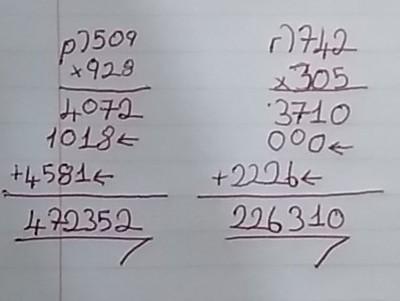 p) 509
×928
4072
1018←
+4581←
472352
r) 742
×305
3710
000←
+2226←
226310